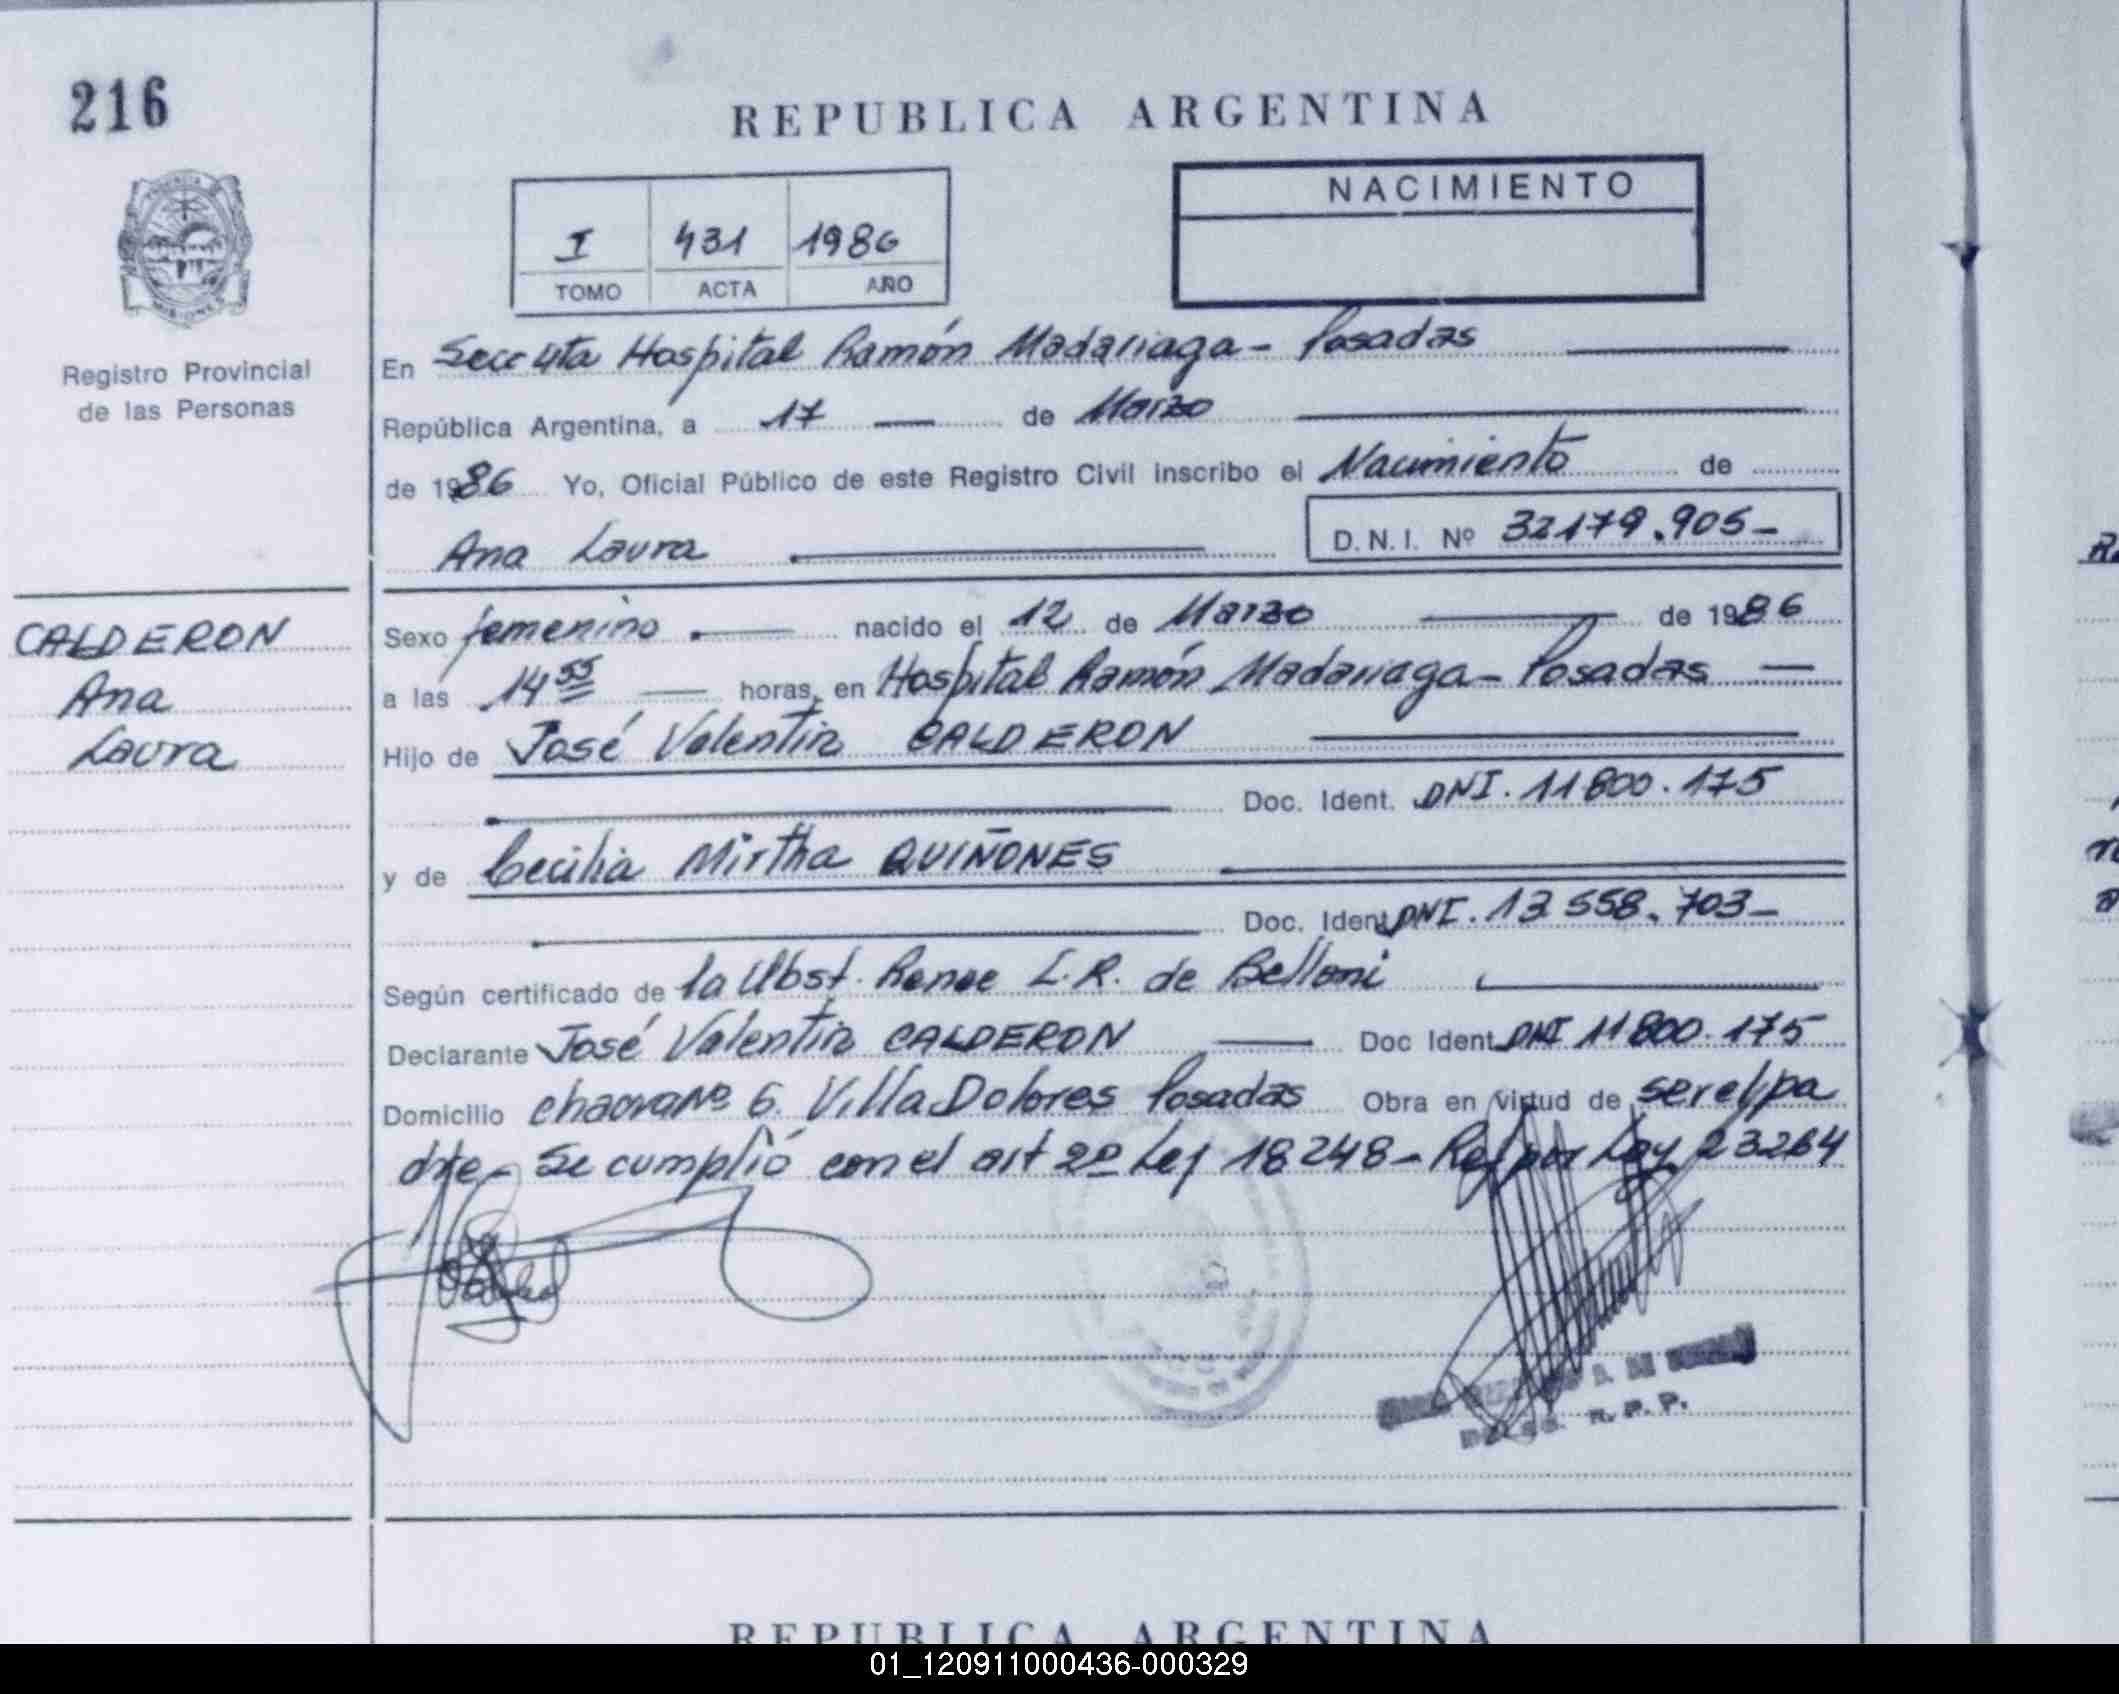 216
REPUBLICA ARGENTINA
NACIMIENTO
I 431 1986
TOMO ACTA AÑO
Registro Provincial
de las Personas
En Secc 4ta Hospital Ramón Madariaga - Posadas
República Argentina, a 17 de Marzo
de 1986 Yo, Oficial Público de este Registro Civil inscribo el Nacimiento de
Ana Laura D.N.I. Nº 32179.905-
CALDERON
Ana
Laura
Sexo femenino nacido el 12 de Marzo de 1986
a las 14 55 horas, en Hospital Ramón Madariaga - Posadas
Hijo de José Valentin CALDERON
Doc. Ident. DNI. 11800.175
y de Cecilia Mirtha QUIÑONES
Doc. Ident DNI. 13558.703-
Según certificado de la Obst. Renee L.R. de Belloni
Declarante José Valentin CALDERON Doc Ident DNI 11800.175
Domicilio chacra Nº 6. Villa Dolores Posadas Obra en virtud de ser el pa
dre - Se cumplió con el art 2º Ley 18248 - Ref por Ley 23264
R. P. P.
REPUBLICA ARGENTINA
01_120911000436-000329